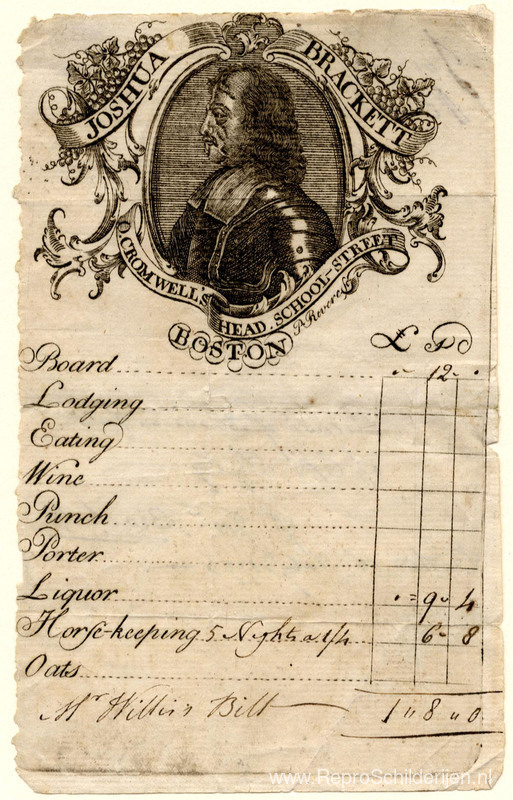 JOSHUA BRACKETT
O. CROMWELL'S HEAD SCHOOL-STREET
P Revere
BOSTON
£ S D
Board 12
Lodging
Eating
Wine
Punch
Porter
Liquor 9 4
Horse-keeping 5 Nights a 1/4 6 8
Oats
Mr Willis's Bill 1 " 8 " 0
www.ReproSchilderijen.nl